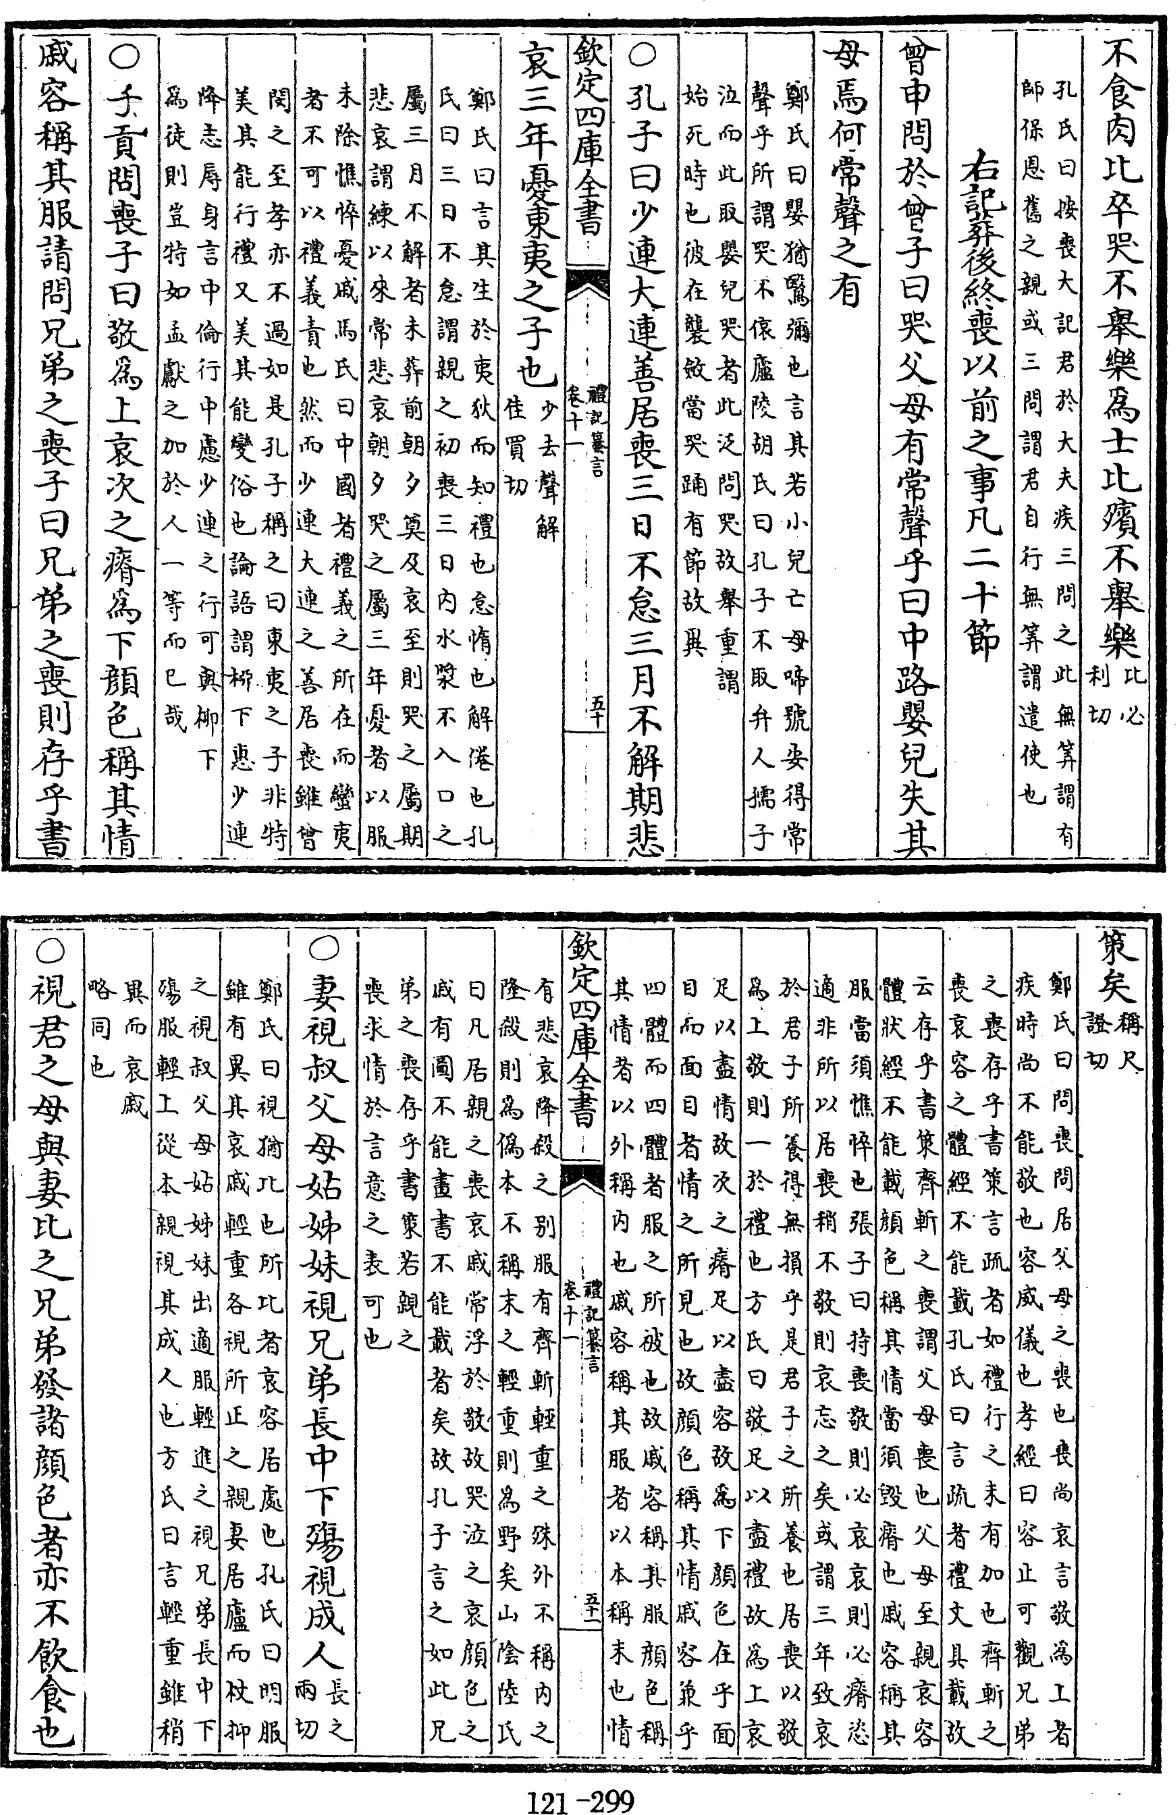 不食肉比卒哭不舉樂爲士比殯不舉樂比必利切
孔氏曰按喪大記君於大夫疾三問之此無筭謂有
師保恩舊之親或三問謂君自行無筭謂遣使也
右記葬後終喪以前之事凡二十節
曾申問於曾子曰哭父母有常聲乎曰中路嬰兒失其
母焉何常聲之有
鄭氏曰嬰猶鷖彌也言其若小兒亡母啼號安得常
聲乎所謂哭不偯廬陵胡氏曰孔子不取弁人孺子
泣而此取嬰兒哭者此泛問哭故舉重謂
始死時也彼在襲斂當哭踊有節故異
○孔子曰少連大連善居喪三日不怠三月不解期悲
欽定四庫全書
禮記纂言
卷十一
五十
哀三年憂東夷之子也少去聲解佳買切
鄭氏曰言其生於夷狄而知禮也怠惰也解倦也孔
氏曰三日不怠謂親之初喪三日內水漿不入口之
屬三月不解者未葬前朝夕奠及哀至則哭之屬期
悲哀謂練以來常悲哀朝夕哭之屬三年憂者以服
未除憔悴憂戚馬氏曰中國者禮義之所在而蠻夷
者不可以禮義責也然而少連大連之善居喪雖曾
閔之至孝亦不過如是孔子稱之曰東夷之子非特
美其能行禮又美其能變俗也論語謂栁下惠少連
降志辱身言中倫行中慮少連之行可與栁下
爲徒則豈特如孟獻之加於人一等而已哉
○子貢問喪子曰敬爲上哀次之瘠爲下顔色稱其情
戚容稱其服請問兄弟之喪子曰兄弟之喪則存乎書
策矣稱尺證切
鄭氏曰問喪問居父母之喪也喪尚哀言敬爲上者
疾時尚不能敬也容威儀也孝經曰容止可觀兄弟
之喪存乎書策言疏者如禮行之未有加也齊斬之
喪哀容之體經不能載孔氏曰言疏者禮文具載故
云存乎書策齊斬之喪謂父母喪也父母至親哀容
體狀經不能載顔色稱其情當須毀瘠也戚容稱其
服當須憔悴也張子曰持喪敬則必哀哀則必瘠恣
適非所以居喪稍不敬則哀忘之矣或謂三年致哀
於君子所養得無損乎是君子之所養也居喪以敬
爲上敬則一於禮也方氏曰敬足以盡禮故爲上哀
足以盡情故次之瘠足以盡容故爲下顔色在乎面
目而面目者情之所見也故顔色稱其情戚容兼乎
四體而四體者服之所被也故戚容稱其服顔色稱
其情者以外稱內也戚容稱其服者以本稱末也情
欽定四庫全書
禮記纂言
卷十一
五十一
有悲哀降殺之別服有齊斬輕重之殊外不稱內之
隆殺則爲偽本不稱末之輕重則爲野矣山陰陸氏
曰凡居親之喪哀戚常浮於敬故哭泣之哀顔色之
戚有圖不能畫書不能載者矣故孔子言之如此兄
弟之喪存乎書策若親之
喪求情於言意之表可也
○妻視叔父母姑姊妹視兄弟長中下殤視成人長之兩切
鄭氏曰視猶比也所比者哀容居處也孔氏曰明服
雖有異其哀戚輕重各視所正之親妻居廬而杖抑
之視叔父母姑姊妹出適服輕進之視兄弟長中下
殤服輕上從本親視其成人也方氏曰言輕重雖稍
異而哀戚
略同也
○視君之母與妻比之兄弟發諸顔色者亦不飲食也
121-299